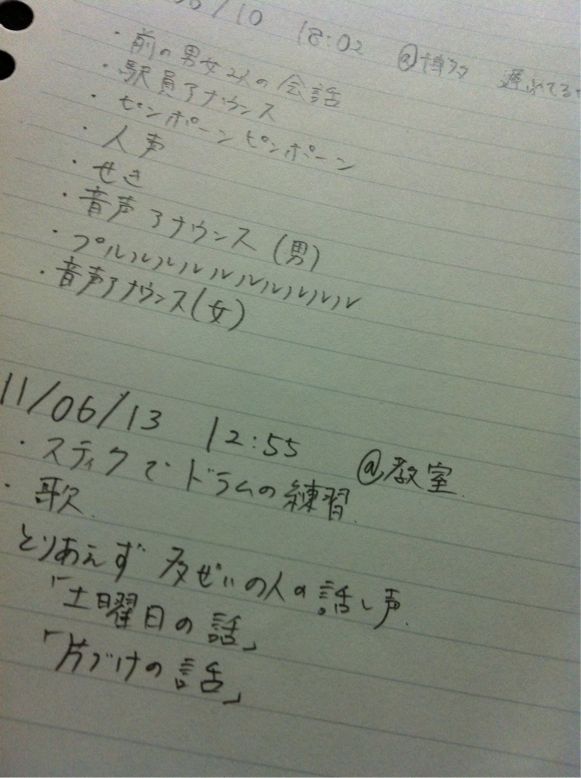 /10 18:02 @博多
・前の男女2人の会話
・駅員アナウンス
・ピンポーンピンポーン
・人声
・せき
・音声アナウンス(男)
・プルルルルルルルルルル
・音声アナウンス(女)
11/06/13 12:55 @教室
・スティクでドラムの練習.
・歌.
とりあえず 多ぜいの人の話し声.
「土曜日の話」
「片づけの話」